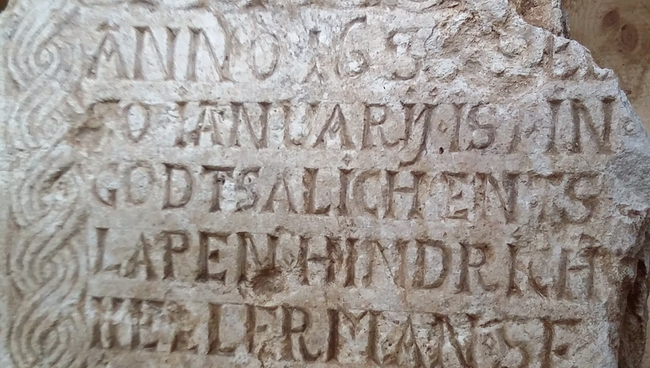 ANNO 163
IANUARIJ·IST IN
GODT SALICH ENTS
LAPEN HINDRICH
KELLERMAN·SE